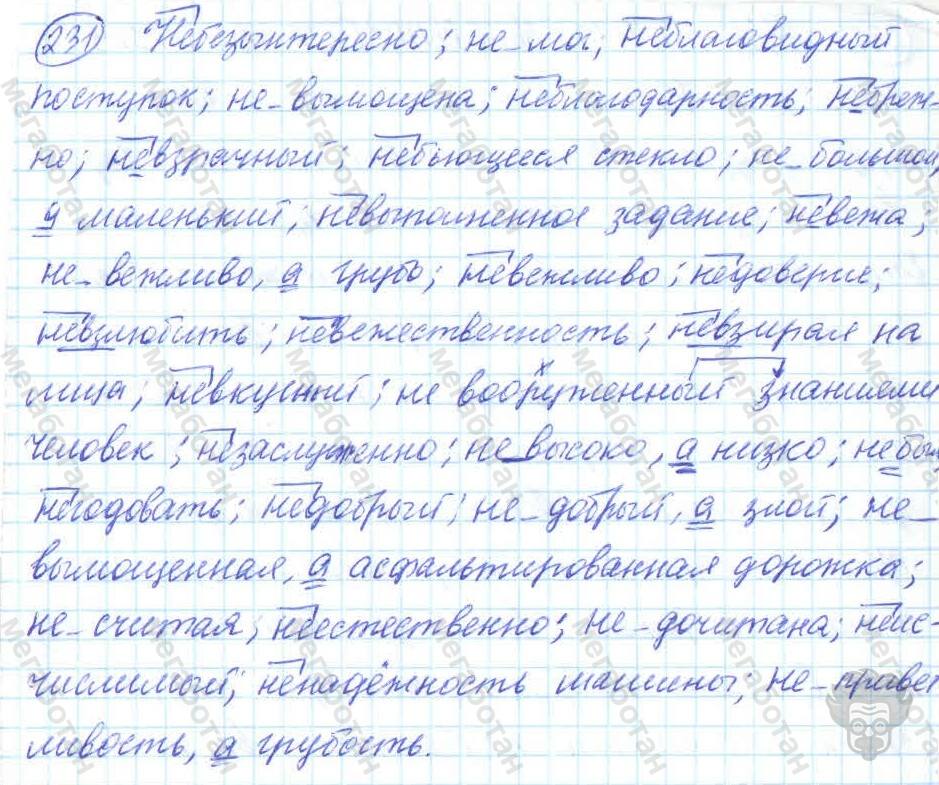 231 Небезынтересно; не мог; неблаговидный
поступок; не вымощена; неблагодарность; небреж-
но; невзрачный; небьющееся стекло; не большой,
а маленький; невыполненное задание; невежа;
не вежливо, а грубо; невежливо; недоверие;
невзлюбить; невежественность; невзирая на
лица; невкусный; не вооруженный знаниями
человек; незаслуженно; не высоко, а низко; небыл
негодовать; недобрый; не добрый, а злой; не
вымощенная, а асфальтированная дорожка;
не считая; неестественно; не дочитана; неис-
числимый; ненадёжность машины; не привет
ливость, а грубость.
мегаботан